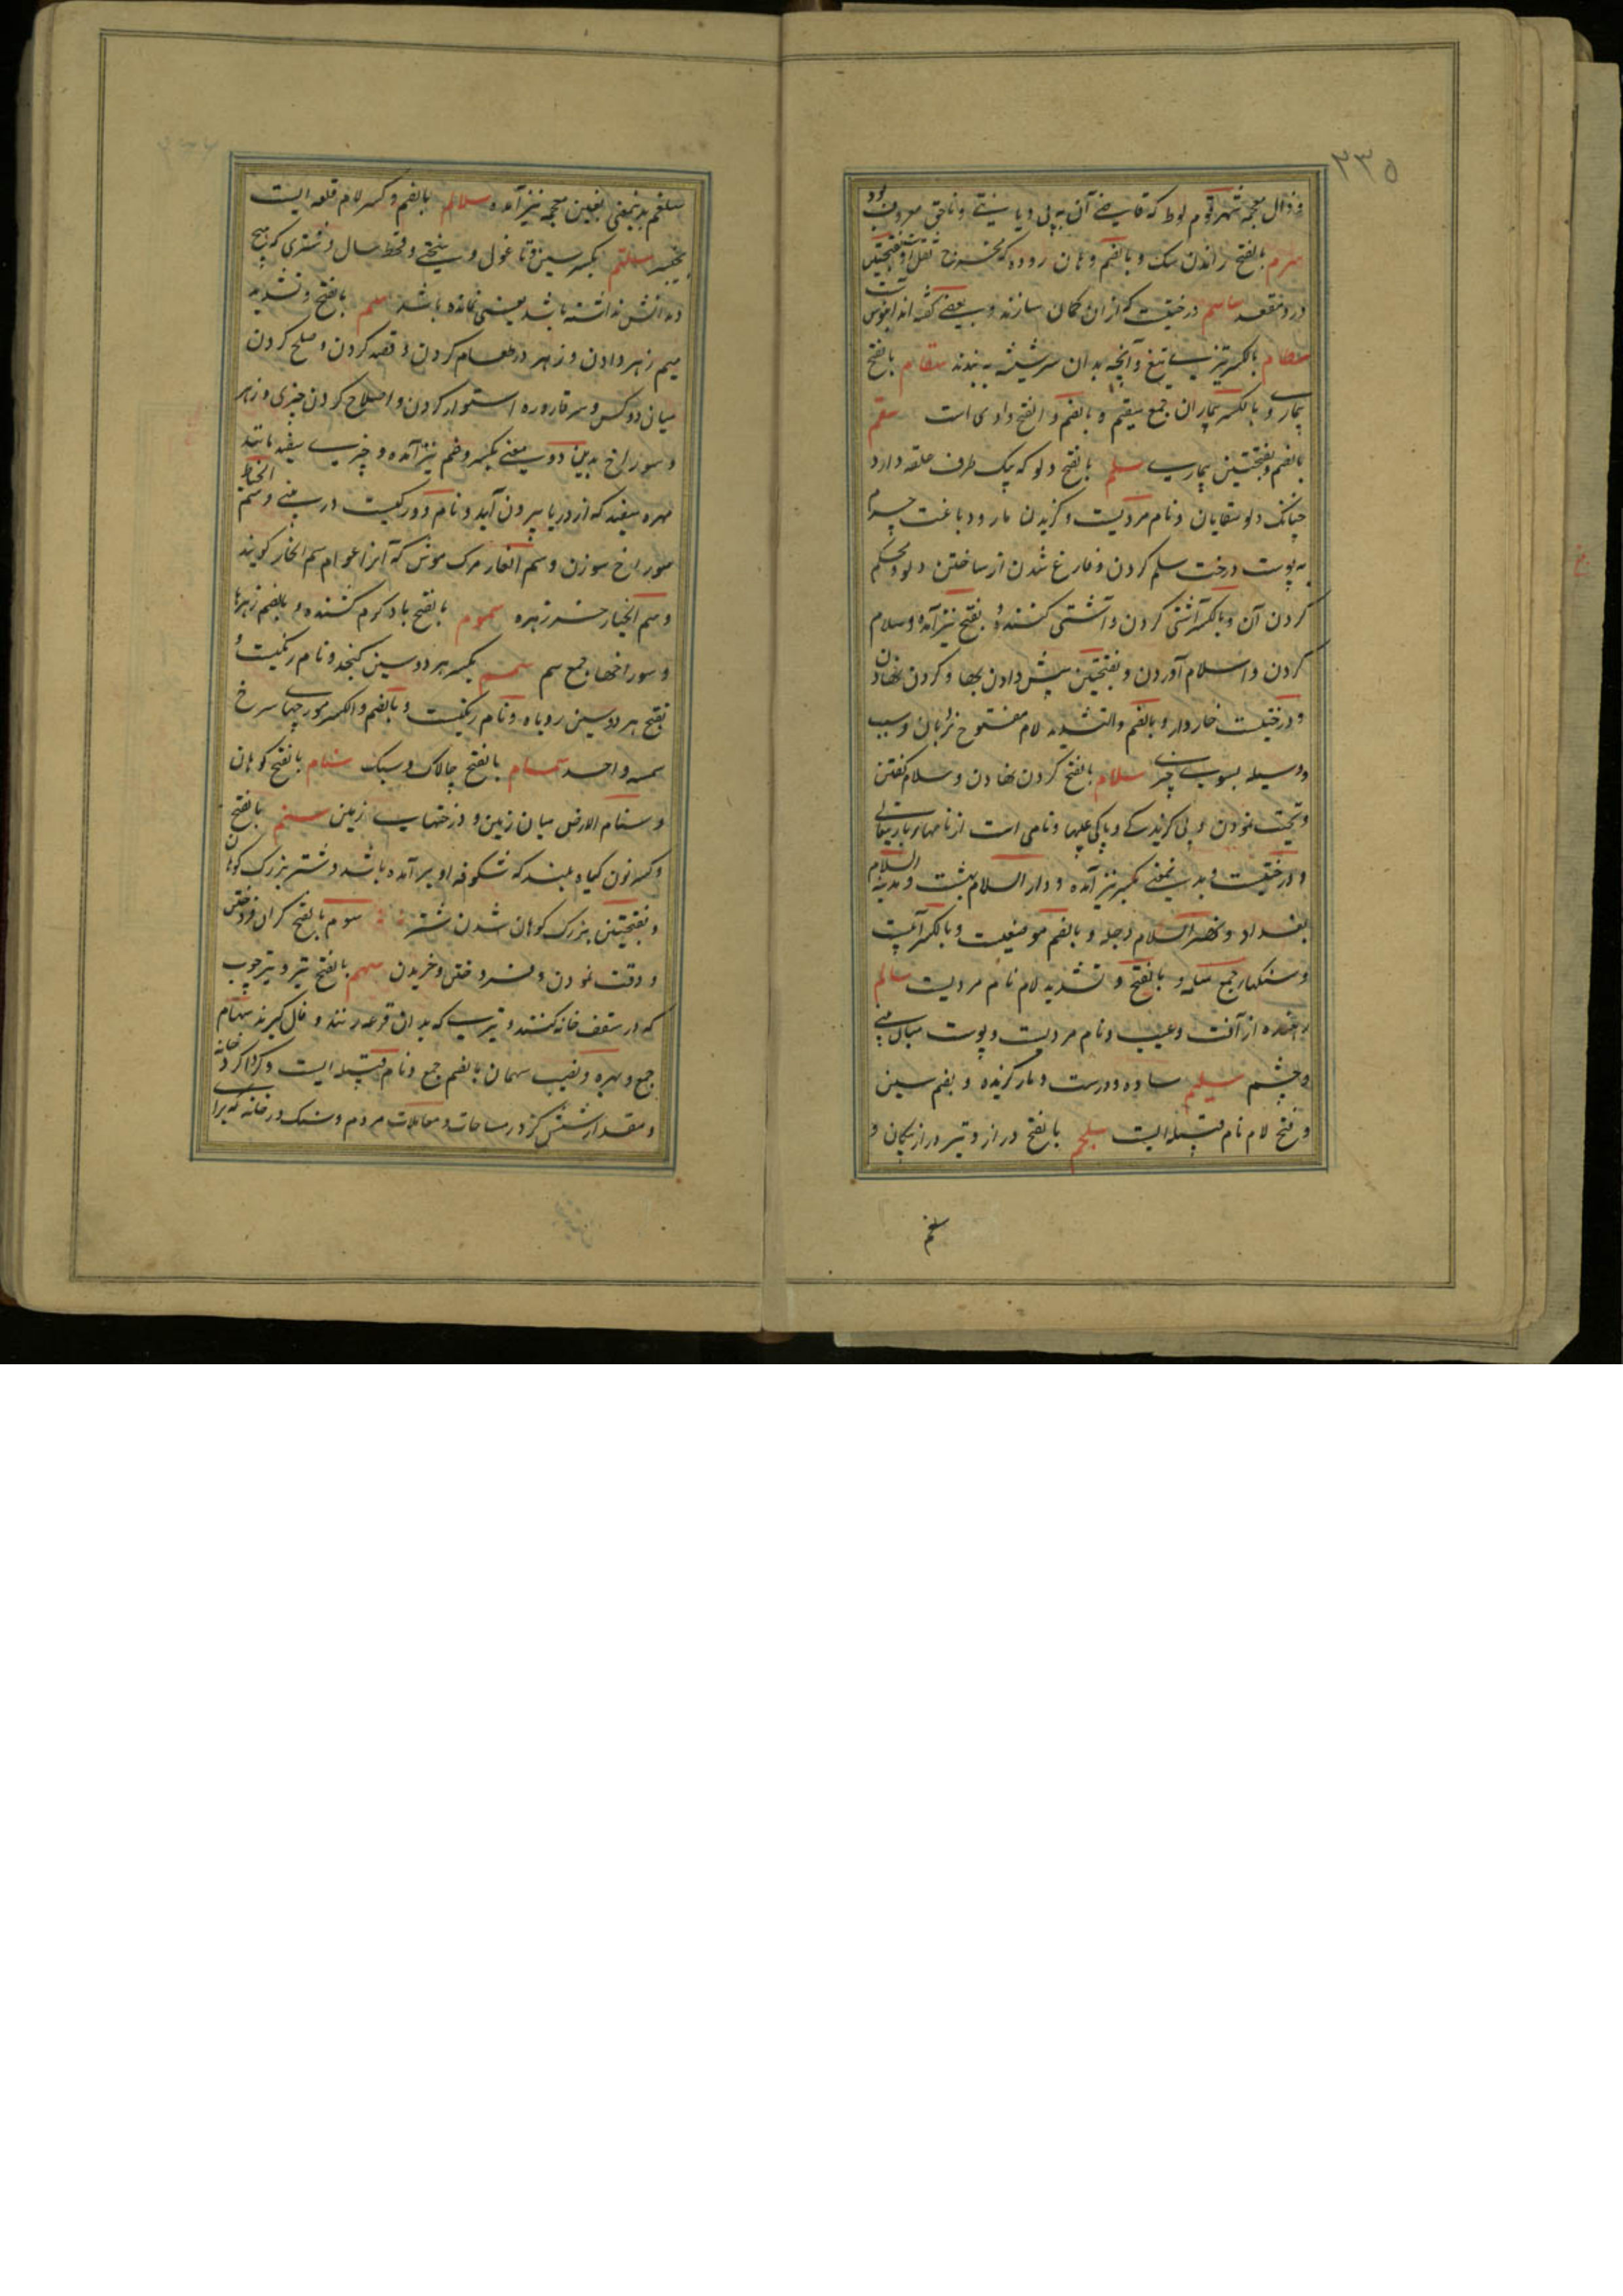 ۲۳۵
و ذال معجمه شهر قوم لوط که قاضی آن به بی دیانتی و ناحق معروف بود
سرم بالفتح راندن سگ و بالضم دهان روده که مخرج ثفل است و بفتحتین
درد مقعد ساسم درختیست که ازان کمان سازند و بعضی گفته اند آبنوس است
سطام بالکسر تیزی تیغ و آنچه بدان سر شیشه بندند سقام بالفتح
بیماری و بالکسر بیماران جمع سقیم و بالضم و الفتح وادی است سقم
بالضم و بفتحتین بیماری سلم بالفتح دلو که یک طرف حلقه دارد
چنانکه دلو سقایان و نام مردیست و گزیدن مار و دباغت چرم
به پوست درخت سلم کردن و فارغ شدن از ساختن دلو و محکم
کردن آن و بالکسر آشتی کردن و آشتی کننده و بفتح نیز آمده و سلام
کردن و اسلام آوردن و بفتحتین پیش دادن بها و گردن نهادن
و درختیست خاردار و بالضم والتشدید لام مفتوح نردبان و سبب
و وسیله بسوی چیزی سلام بالفتح گردن نهادن و سلام گفتن
و تحیت نمودن و بی گزندی و پاکی از عیبها و نامی است از نامهای باریتعالی
و درختیست و بدین معنی بکسر نیز آمده و دار السلام بهشت و مدینة السلام
بغداد و نهر السلام دجله و بالضم موضعیست و بالکسر آبیست
و سنگها جمع سلمه و بالفتح و تشدید لام نام مردیست سالم
رهنده از آفت و عیب و نام مردیست و پوست میان بینی
و چشم سلیم ساده و درست و مار گزیده و بضم سین
و فتح لام نام قبیله ایست سلجم بالفتح دراز و تیر دراز پیکان و
سلغم
سلغم بدینمعنی بغین معجمه نیز آمده سلالم بالضم و کسر لام قلعه ایست
بخیبر سلتم بکسر سین و تا غول و سختی و قحط سال و شتری که هیچ
دندانش نداشته باشد یعنی نمانده باشد سم بالفتح و تشدید
میم زهر دادن و زهر در طعام کردن و قصد کردن و صلح کردن
میان دو کس و سر قاروره استوار کردن و اصلاح کردن چیزی و زهر
و سوراخ بدین دو معنی بکسر و ضم نیز آمده و چیزی سفید مانند
مهره سفید که از دریا بیرون آید و نام دو رگیست در بینی و سم الخیاط
سوراخ سوزن و سم الفار مرگ موش که آنرا عوام سم الخار گویند
و سم الحمار خرزهره سموم بالفتح باد گرم کشنده و بالضم زهرها
و سوراخها جمع سم سمسم بکسر هر دو سین کنجد و نام ریگیست و
بفتح هر دو سین روباه و نام ریگیست و بالضم والکسر مورچهای سرخ
سمسمه واحد سمسام بالفتح چالاک و سبک سنام بالفتح کوهان
و سنام الارض میان زمین و درختهای زمین سنم بالفتح
و کسر نون گیاه بلند که شکوفه او برآمده باشد و شتر بزرگ کوهان
و بفتحتین بزرگ کوهان شدن شتر سوم بالفتح گران فروختن
و وقت نمودن و فروختن و خریدن سهم بالفتح تیر و تیر چوب
که در سقف خانه کنند و تیری که بدان قرعه زنند و فال گیرند سهام
جمع و بهره و نصیب سهمان بالضم جمع و نام قبیله ایست و گرداگرد خانه
و مقدار شش گز در مساحات و معاملات مردم و سنگ در خانه که برای